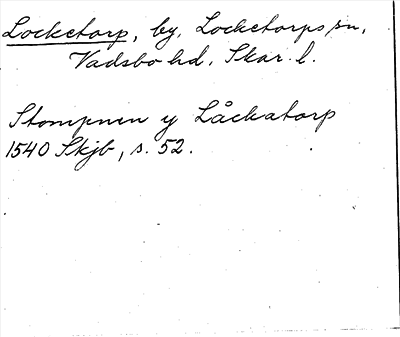 Locketorp, by, Locketorps sn,
Vadsbo hd, Skar. l.
Stompnen y Låckatorp
1540 Skjb, s. 52.